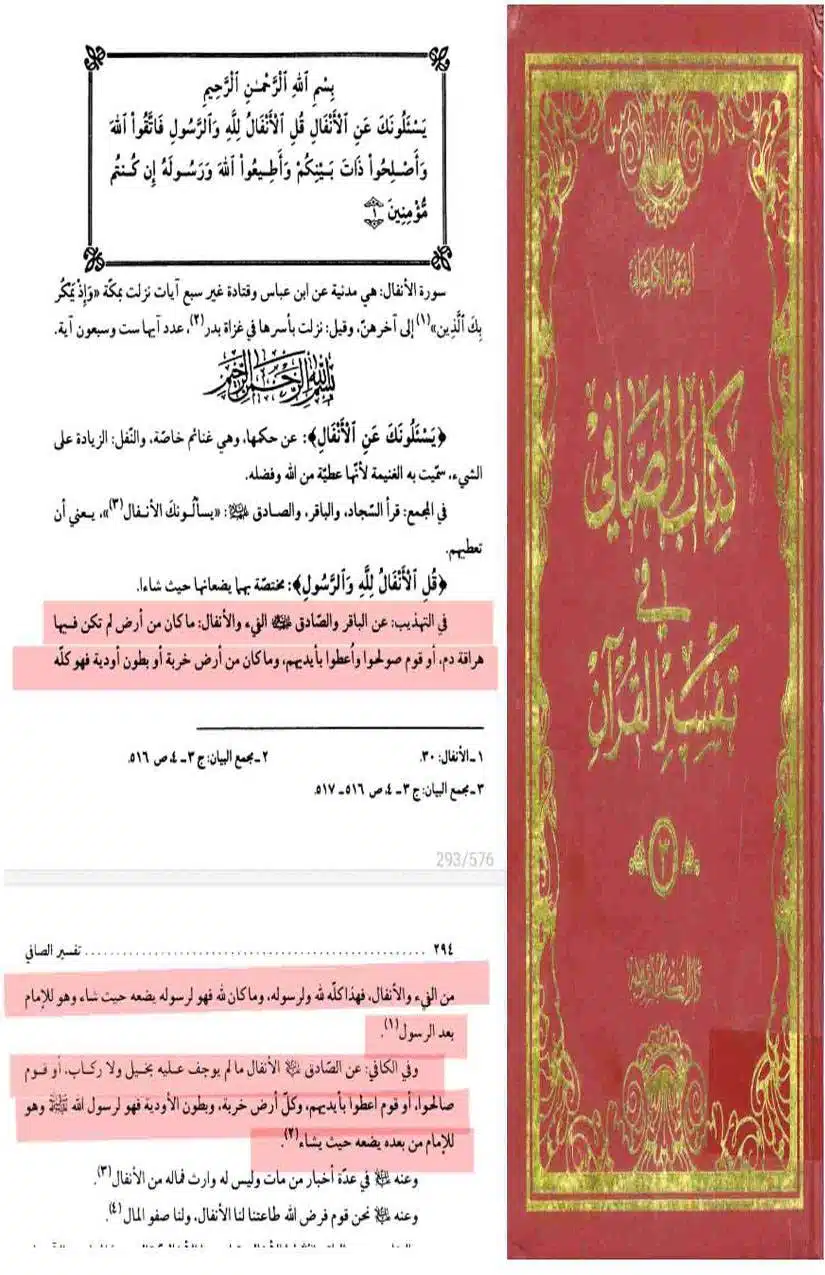 بِسْمِ اللهِ الرَّحْمٰنِ الرَّحِيمِ
يَسْئَلُونَكَ عَنِ الْأَنْفَالِ قُلِ الْأَنْفَالُ لِلَّهِ وَالرَّسُولِ فَاتَّقُواْ اللهَ
وَأَصْلِحُواْ ذَاتَ بَيْنِكُمْ وَأَطِيعُواْ اللهَ وَرَسُولَهُ إِن كُنتُم
مُّؤْمِنِينَ ١
سورة الأنفال: هي مدنية عن ابن عباس وقتادة غير سبع آيات نزلت بمكّة «وَإِذْ يَمْكُرُ
بِكَ الَّذِينَ»(١) إلى آخرهنّ، وقيل: نزلت بأسرها في غزاة بدر(٢)، عدد آيها ست وسبعون آية.
بسم الله الرحمن الرحيم
﴿يَسْئَلُونَكَ عَنِ الْأَنْفَالِ﴾: عن حكمها، وهي غنائم خاصّة، والنّفل: الزيادة على
الشيء، سمّيت به الغنيمة لأنّها عطيّة من الله وفضله.
في المجمع: قرأ السّجاد، والباقر، والصادق عليهم السلام: «يسألونك الأنفال(٣)»، يعني أن
تعطيهم.
﴿قُلِ الْأَنْفَالُ لِلَّهِ وَالرَّسُولِ﴾: مختصّة بهما يضعانها حيث شاءا.
في التهذيب: عن الباقر والصّادق عليهما السلام الفيء والأنفال: ما كان من أرض لم تكن فيها
هراقة دم، أو قوم صولحوا وأعطوا بأيديهم، وما كان من أرض خربة أو بطون أودية فهو كلّه
١ـ الأنفال: ٣٠.
٢ـ مجمع البيان: ج ٣ـ ٤، ص ٥١٦.
٣ـ مجمع البيان: ج ٣ـ ٤، ص ٥١٦ـ ٥١٧.
293/576
٢٩٤ ........ تفسير الصافي
من الفيء والأنفال، فهذا كلّه لله ولرسوله، وما كان لله فهو لرسوله يضعه حيث شاء وهو للإمام
بعد الرسول(١).
وفي الكافي: عن الصّادق عليه السلام الأنفال ما لم يوجف عليه بخيل ولا ركاب، أو قوم
صالحوا، أو قوم اعطوا بأيديهم، وكلّ أرض خربة، وبطون الأودية فهو لرسول الله ﷺ وهو
للإمام من بعده يضعه حيث يشاء(٢).
وعنه عليه السلام في عدّة أخبار من مات وليس له وارث فماله من الأنفال(٣).
وعنه عليه السلام نحن قوم فرض الله طاعتنا لنا الأنفال، ولنا صفو المال(٤).
كتاب الصافي
في
تفسير القرآن